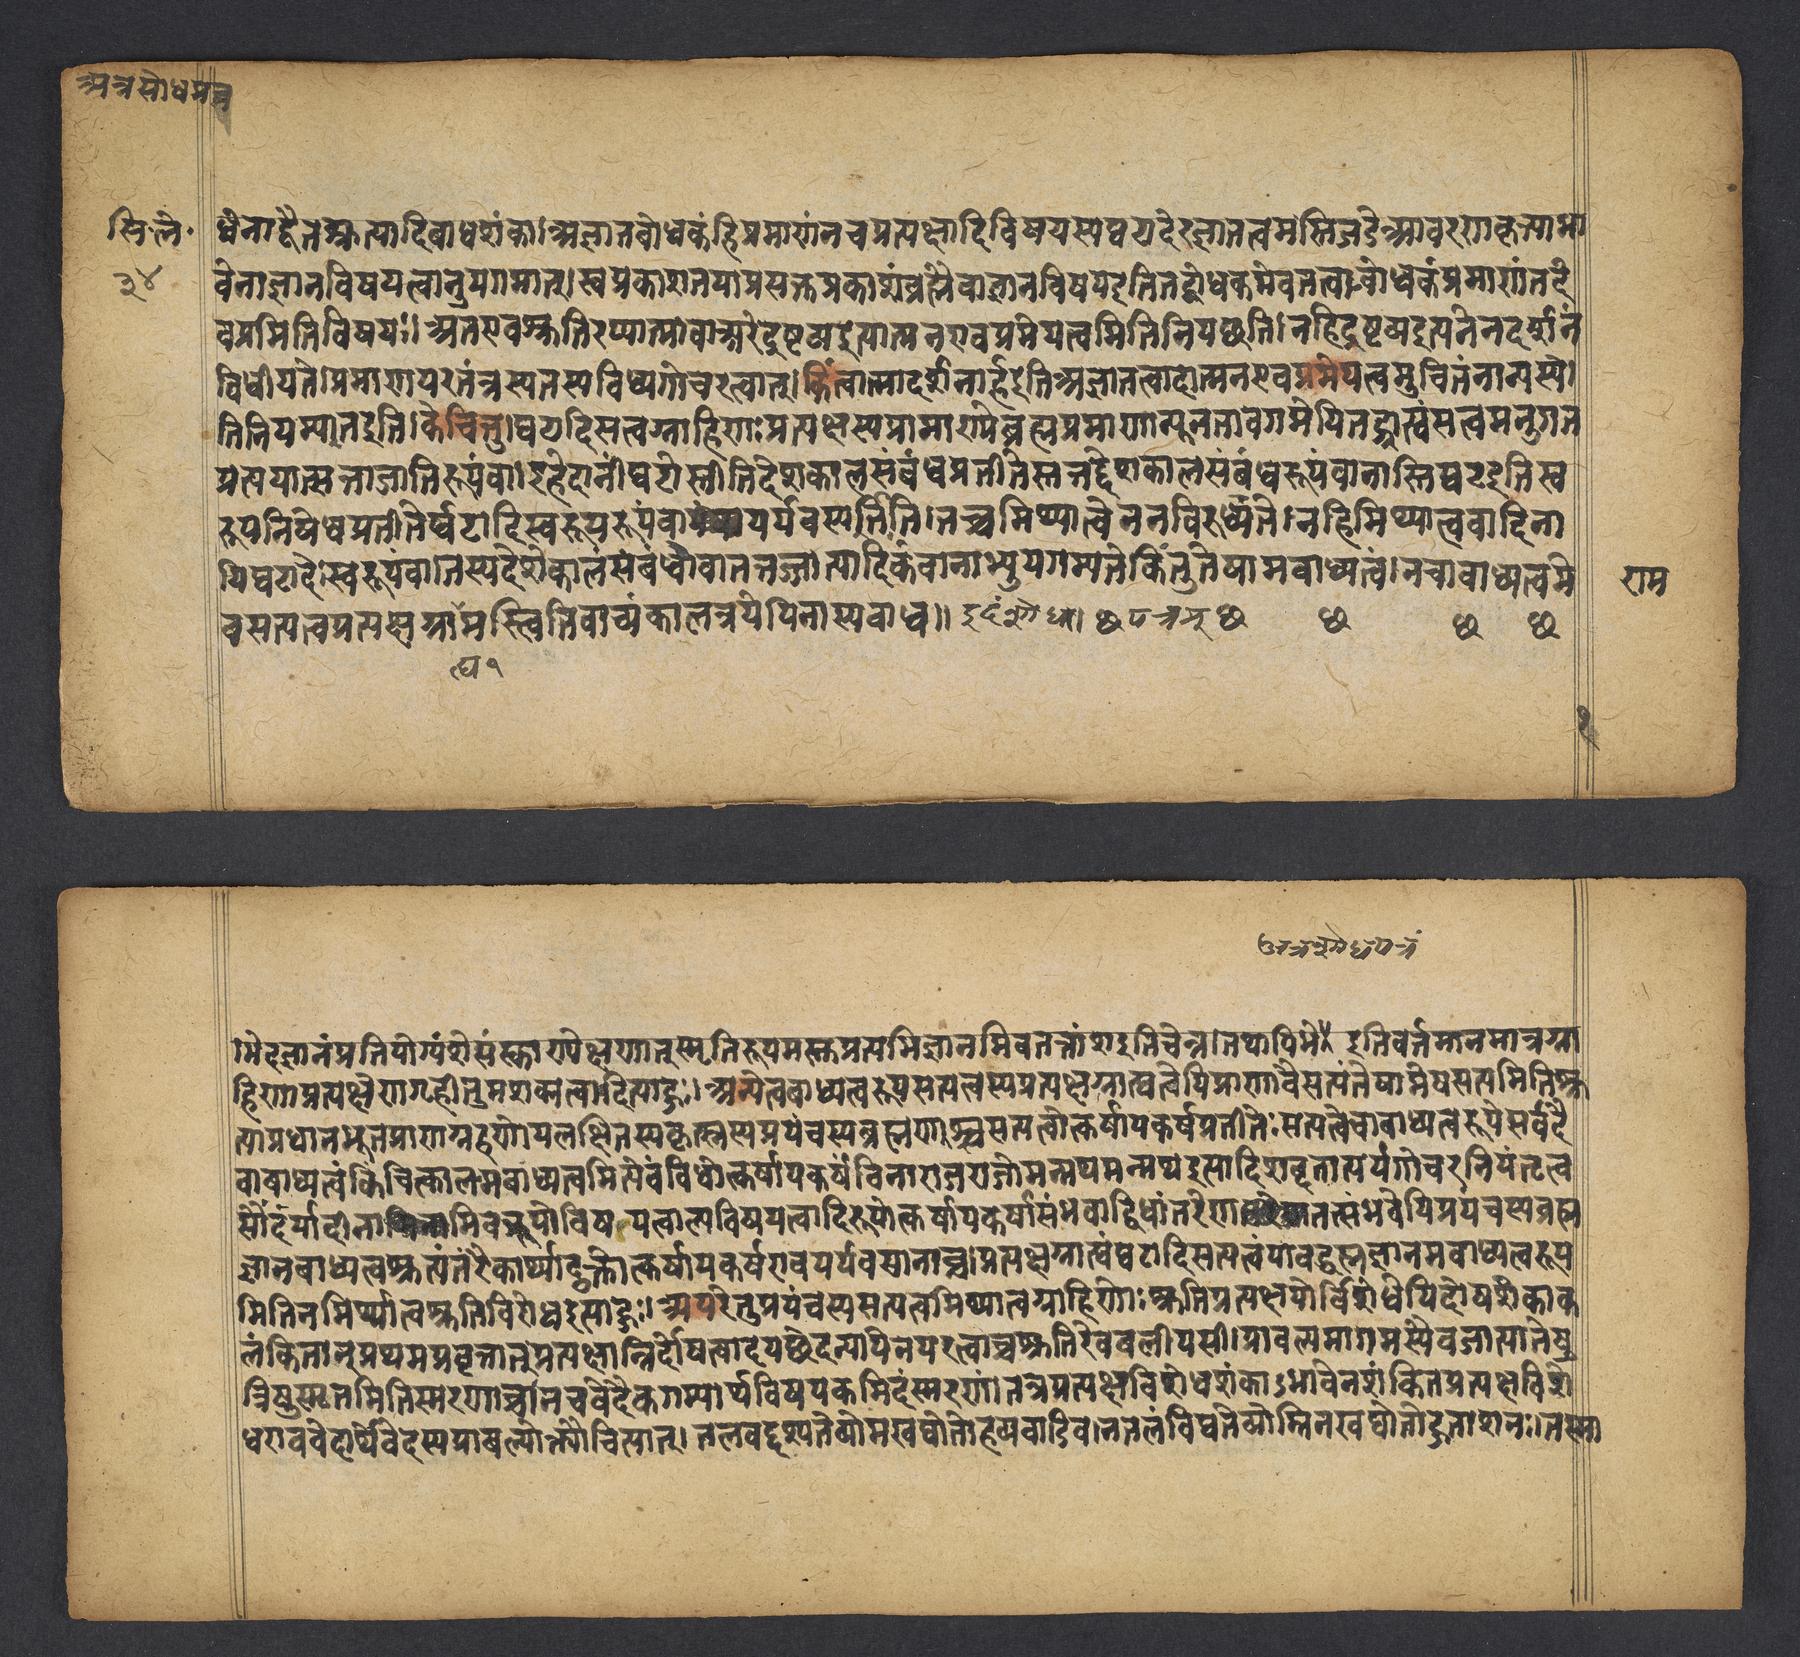 अत्रसोधपत्र
सि.ले.
३४
धेनाद्वैतश्रुत्यादिबाधशंका।अज्ञातबोधकंहिप्रमाणंनचप्रत्यक्षादिविषयस्यघटादेरज्ञातत्वमस्तिजडेआवरणकृत्याभा
वेनाज्ञानविषयत्वानुपगमात्।स्वप्रकाशतयाप्रसक्तप्रकाशंब्रह्मैवाज्ञानविषयइतितद्बोधकमेवतत्वाबोधकंप्रमाणंतदे
वप्रमितिविषयः।।अतएवश्रुतिरप्यात्मावाअरेद्रष्टव्यइत्यात्मनएवप्रमेयत्वमितिनियच्छति।नहिद्रष्टव्यइत्यनेनदर्शनं
विधीयते।प्रमाणपरतंत्रस्यतस्यविध्यगोचरत्वात्।किंत्वात्मादर्शनार्हइतिअज्ञातत्वादात्मनएवप्रमेयत्वमुचितंनान्यस्ये
तिनियम्यातइति।केचित्तु।घटादिसत्वग्राहिणःप्रत्यक्षस्यप्रामाण्येब्रह्मप्रमाणान्यूनतावगमेपितद्ग्राह्यंसत्वमनुगत
प्रत्ययात्सत्ताजातिरूपंवा।इहेदानींघटोस्तीतिदेशकालसंबंधप्रतीतेस्तत्तद्देशकालसंबंधरूपंवानास्तिघटइतिस्व
रूपनिषेधप्रतीतेर्घटादिस्वरूपरूपंवापर्यवस्यतीति।तच्चमिथ्यात्वेननविरुध्यते।नहिमिथ्यात्ववादिना
पिघटादेःस्वरूपंवा।तस्यदेशकालसंबंधोवातत्रजात्यादिकंवानाभ्युपगम्यतेकिंतुतेषामबाध्यत्वं।नचाबाध्यत्वमे
राम
वसत्यत्वप्रत्यक्षग्राह्यमस्त्वितिवाच्यंकालत्रयेपिनास्यबाध॥ छ छ छ छ छ
मेहज्ञानंप्रतियोग्यंशेसंस्कारापेक्षणात्स्मृतिरूपमस्तुप्रत्यभिज्ञानमिवतत्तांशइतिचेन्न।तथापि इतिवर्तमानमात्रग्रा
हिणाप्रत्यक्षेणग्रहीतुमशक्यत्वादित्याहुः।अन्येत्वबाध्यत्वरूपसत्यत्वस्यप्रत्यक्षग्राह्यत्वेपिप्राणावैसत्यंतेषामेषसत्यमितिश्रु
त्याप्रधानभूतप्राणग्रहणोपलक्षितस्यकृत्स्नस्यप्रपंचस्यब्रह्मणश्चसत्यत्वोत्कर्षापकर्षप्रतीतेःसत्यत्वेचाबाध्यत्वरूपेसर्वदै
वाबाध्यत्वंकिंचित्कालमबाध्यत्वमित्येवंविधोत्कर्षापकर्षंविनाराजराजोमन्मथमन्मथइत्यादिशब्दतात्पर्यगोचरनियंतृत्व
सौंदर्यादीनामिवभूयोविषयत्वाल्पविषयत्वादिरूपोत्कर्षापकर्षासंभवाद्विधांतरेणतत्संभवेपिप्रपंचस्यब्रह्म
ज्ञानबाध्यत्वश्रुत्यंतरैकार्थ्यादुक्तोत्कर्षापकर्षएवपर्यवसानाच्च।प्रत्यक्षग्राह्यंघटादिसत्यत्वंयावद्ब्रह्मज्ञानमबाध्यत्वरूप
मितिनमिथ्यात्वश्रुतिविरोधइत्याहुः।अपरेतुप्रपंचस्यसत्यत्वमिथ्यात्वग्राहिणोःश्रुतिप्रत्यक्षयोर्विरोधेपिदोषशंकाक
लंकितात्प्रथमप्रवृत्तात्प्रत्यक्षान्निर्दोषत्वादपच्छेदन्यायेनपरत्वाच्चश्रुतिरेवबलीयसी।प्राबल्यमागमस्यैवजात्यातेषु
त्रिषुस्मृतमितिस्मरणाच्च।नचवेदैकगम्यार्थविषयकमिदंस्मरणंतत्रप्रत्यक्षविरोधशंकाऽभावेनशंकितप्रत्यक्षविरो
धएववेदार्थेवेदस्यप्राबल्योक्त्यौचित्यात्। तलवद्दृश्यतेव्योमखद्योतोहव्यवाडिव।नतलंविद्यतेव्योम्निनखद्योतोहुताशनः।तस्मा